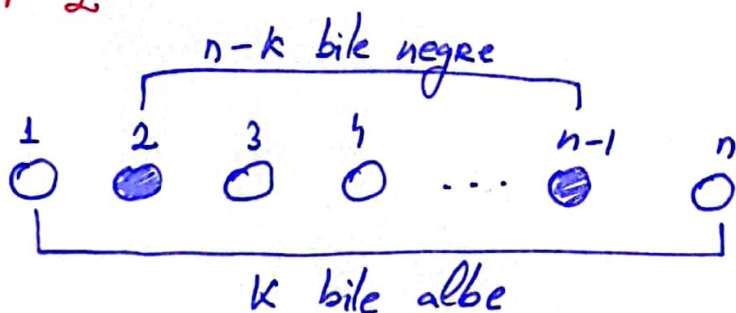 n-k bile negre
1 2 3 4 n-1 n
...
k bile albe